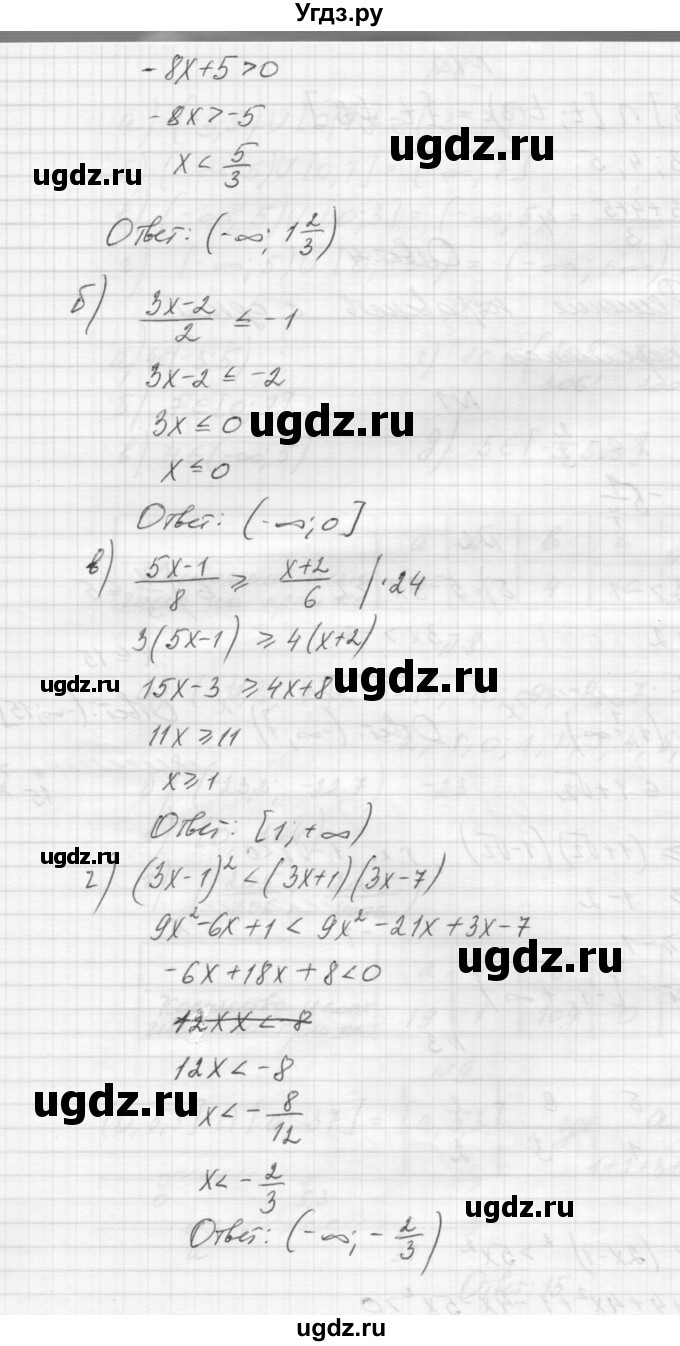 Угдз.ру
-8x+5>0
-8x>-5
ugdz.ru
x < 5/3
ugdz.ru
Ответ: (-∞; 1 2/3)
б) (3x-2)/2 ≤ -1
3x-2 ≤ -2
3x ≤ 0
ugdz.ru
x ≤ 0
Ответ: (-∞; 0]
в) (5x-1)/8 ≥ (x+2)/6 /·24
3(5x-1) ≥ 4(x+2)
ugdz.ru
15x-3 ≥ 4x+8
ugdz.ru
11x ≥ 11
x ≥ 1
Ответ: [1; +∞)
ugdz.ru
г) (3x-1)² < (3x+1)(3x-7)
9x²-6x+1 < 9x²-21x+3x-7
ugdz.ru
-6x+18x+8<0
12xx < -8
12x < -8
ugdz.ru
x < -8/12
x < -2/3
ugdz.ru
Ответ: (-∞; -2/3)
ugdz.ru